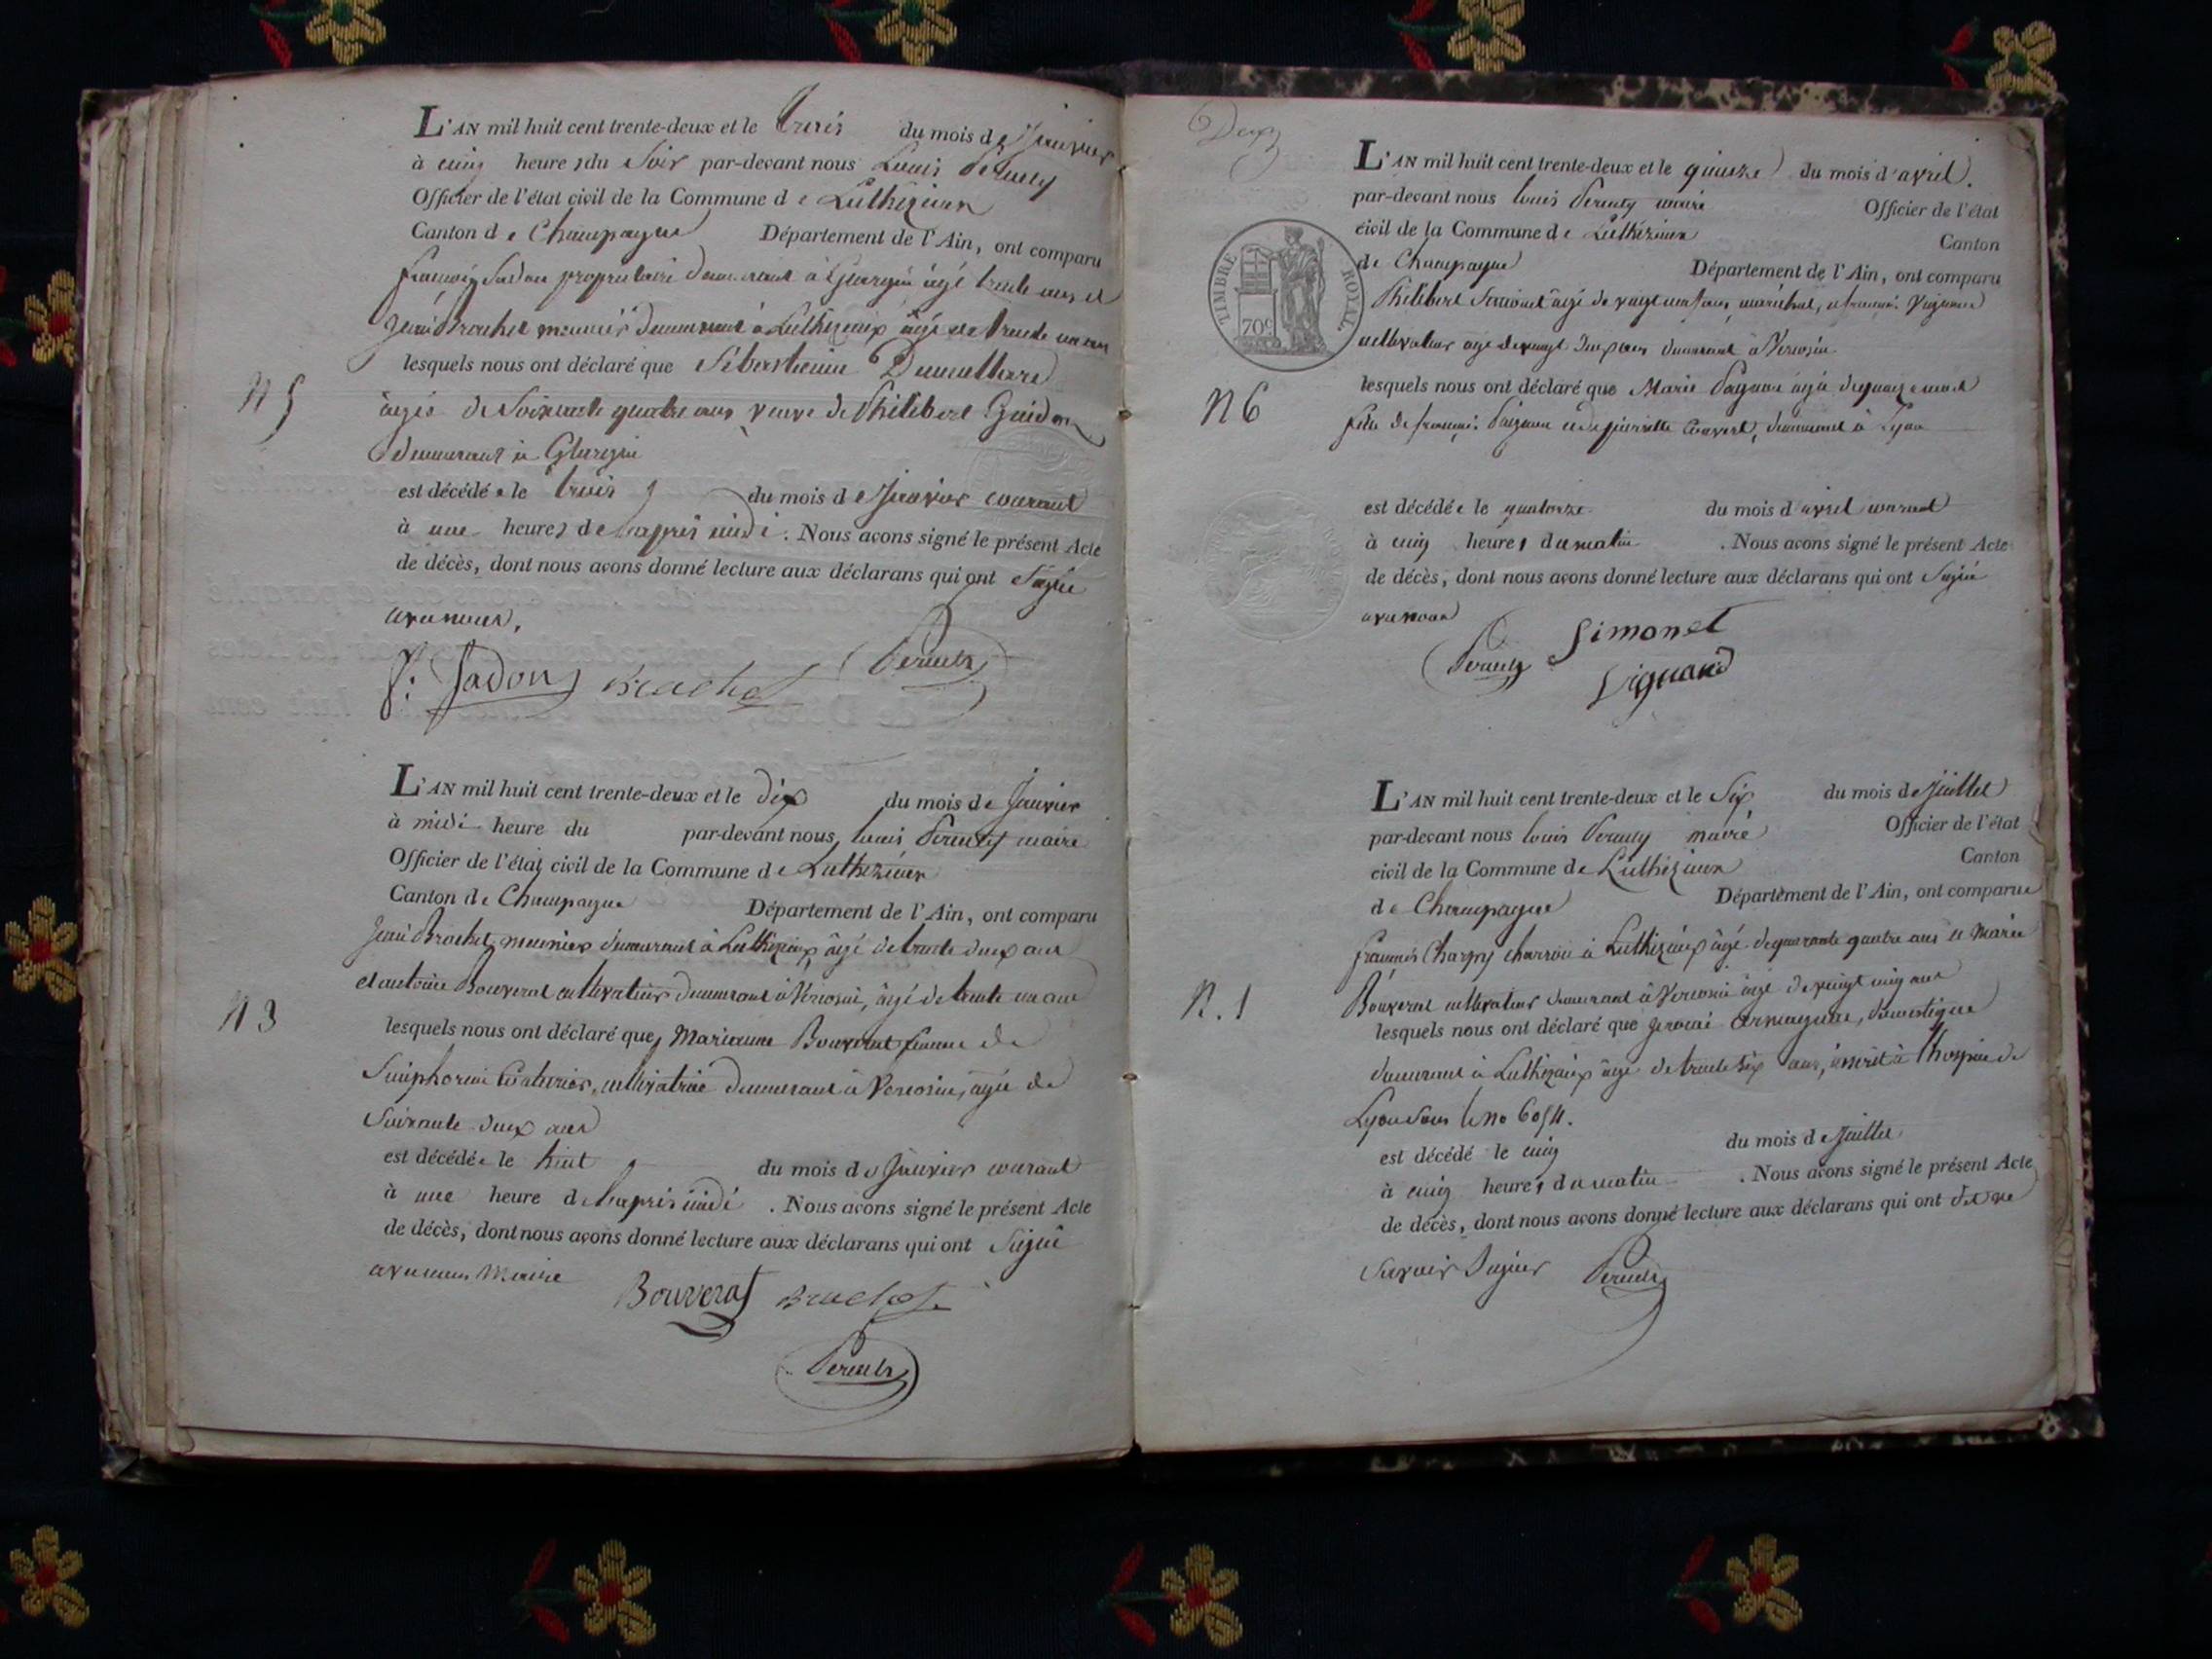 L'AN mil huit cent trente-deux et le trois du mois de Janvier
à cinq heures du Soir par-devant nous Louis
Officier de l'état civil de la Commune de Luthezieux
Canton de Champagne Département de l'Ain, ont comparu
françois Jadon propriétaire demeurant à agé trente ans et
Jean Brachet meunier demeurant à Luthezieux agé de trente un ans
lesquels nous ont déclaré que
N 5
agée de Soixante quatre ans veuve de Philibert Guidon
demeurant à
est décédée le trois du mois de Janvier courant
à une heures de l'apres midi. Nous avons signé le présent Acte
de décès, dont nous avons donné lecture aux déclarans qui ont Signé
avec nous,
J: Jadon Brachet
L'AN mil huit cent trente-deux et le dix du mois de Janvier
à midi heure du par-devant nous, Louis maire
Officier de l'état civil de la Commune de Luthezieux
Canton de Champagne Département de l'Ain, ont comparu
Jean Brachet, meunier demeurant à Luthezieux, agé de trente deux ans
et antoine Bouverat cultivateur demeurant à Vercosin, agé de trente un ans
N 3
lesquels nous ont déclaré que, Marianne Bouverat femme de
Simphorien cultivatrice demeurant à Vercosin, agée de
Soixante deux ans
est décédée le huit du mois de Janvier courant
à une heure de l'apres midi. Nous avons signé le présent Acte
de décès, dont nous avons donné lecture aux déclarans qui ont Signé
avec nous Maire
Bouverat Brachet
Deux
L'AN mil huit cent trente-deux et le quinze du mois d'avril.
par-devant nous Louis maire Officier de l'état
civil de la Commune de Luthezieux Canton
de Champagne Département de l'Ain, ont comparu
TIMBRE ROYAL.
70c
Philibert Simonet agé de vingt ans, maréchal, et françois
cultivateur agé de vingt deux ans demeurant à Vercosin
N 6
lesquels nous ont déclaré que Marie agée de quinze mois
fille de françois et de pierrette demeurant à Lyon
est décédée le quatorze du mois d'avril courant
à cinq heures du matin. Nous avons signé le présent Acte
de décès, dont nous avons donné lecture aux déclarans qui ont Signé
avec nous
Simonet
Vignand
L'AN mil huit cent trente-deux et le Six du mois de Juillet
par-devant nous Louis maire Officier de l'état
civil de la Commune de Luthezieux Canton
de Champagne Département de l'Ain, ont comparu
françois Charpy charron à Luthezieux agé de quarante quatre ans et Marin
N. 1
Bouverat cultivateur demeurant à Vercosin agé de vingt cinq ans
lesquels nous ont déclaré que domestique
demeurant à Luthezieux agé de trente six ans, inscrit à l'hospice de
Lyon sous le no 6054.
est décédé le cinq du mois de Juillet
à cinq heures du matin. Nous avons signé le présent Acte
de décès, dont nous avons donné lecture aux déclarans qui ont dit ne
Savoir Signer